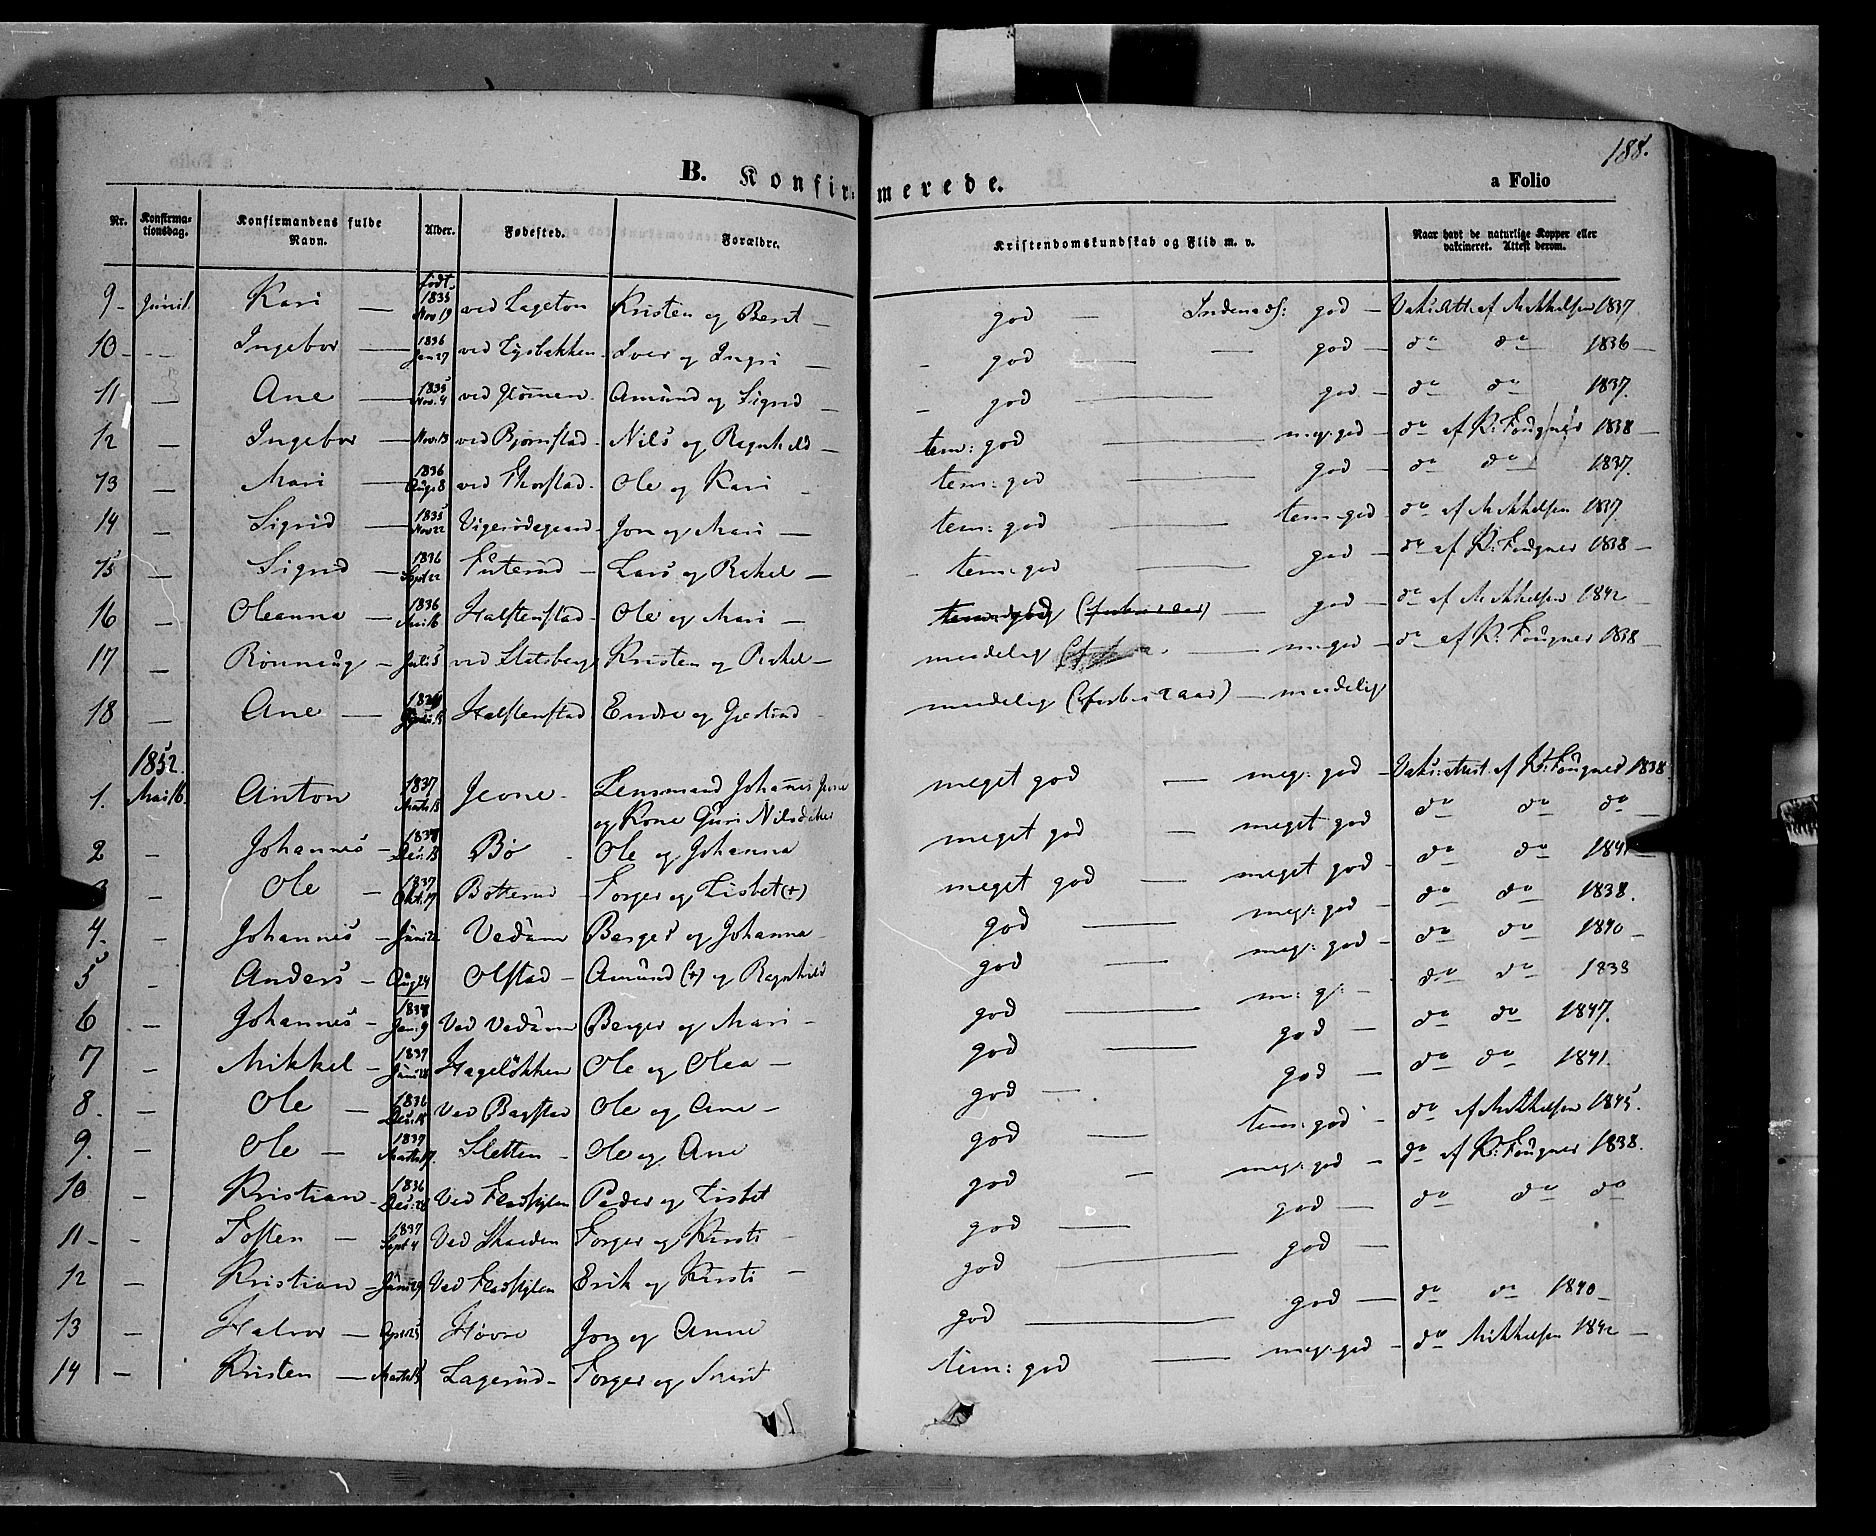 188.
B. Konfirmerede.
a Folio
Nr. Konfirmationsdag. Konfirmandens fulde Navn. Alder. Fødested. Forældre. Kristendomskundskab og Flid m. v. Naar havt de naturlige Kopper eller vakcineret. Attest derom.
9 - Juni 1. Kari — født 1835 Nov 19 ved Lageton Kristen og Berit — god — god — af Mikkelsen 1837
10 - - Ingebor — 1836 Jan 27 ved Lysbakken Iver og Ingri — god — god — do do 1836 —
11 — Ane — 1835 Nov. 4 ved Amund og Sigrid — god — god — do do 1837.
12 — Ingebor — Nov. 13 ved Bjørnstad Nils og Regnhild — tem: god — meg: god — do af K: Fougner 1838 —
13 — Mari — 1836 Aug. 8 ved Thorstad Ole og Kari — tem: god — god — do do 1837.
14 — Sigrid — 1835 Nov 22 Jon og Mari — tem: god — tem: god — do af Mikkelsen 1837
15 — Sigrid — 1836 Sept 22 Futerud — Lars og Rakel — tem: god — god — do af K: Fougner 1838 —
16 — Oleanna — 1836 Halstenstad — Ole og Mari — god — do af Mikkelsen 1842 —
17 — Rønnaug — Juli 5 ved Kristen og — maadelig — m: god — do af K: Fougner 1838 —
18 — Ane — Halstenstad Endre og maadelig — maadelig
1852.
1. Mai 16. Anton 1837 Marts 13 Jevne - Lensmand Johannes Jevne og Kone Guri Nilsdatter meget god — meg: god — Vaks: attest. af K: Fougner 1838.
2 — Johannes — Des: 18 Bø - Ole og Johanna meget god — meget god do do do
3 — Ole — 1837 Okt. 19 Botterud — Torger og Lisbet (+) meget god — meget god — do do 1841
4. — Johannes — Juni Vedum Berger og Johanna — god — meg: god — do do 1838.
5 — Anders — Aug 24 Olstad — Amund (+) og Regnhild god — meg: god — do do 1840 —
6 — Johannes — Jan. 9 Ved Vedum Berger og Mari — god — m: g: — do do 1838
7 — Mikkel — 1837 Juni 28 Hageløkken Ole og Olea — god — god — do do 1847.
8. — Ole — 1836 Des. 18 Ved Bagstad Ole og Ane — god — god — do do 1841.
9. — Ole — 1837 Marts 17. Sletten — Ole og Ane god — tem: god — do af Mikkelsen 1845.
10 — Kristian — 1836 Des. 28 Ved Peder og Lisbet god — meg: god — do af K: Fougner 1838.
11 - — Tosten — 1837 Sept 4 Ved Torger og Kirsti — god — god — do do do
12 — Kristian — Juni 29 Ved Erik og Kirsti — god — god —
13 — Halvor — Apr 25 Høvre Jon og Anne god — god — do do 1840 —
14 — Kristen — Marts 15 Lagerud — Torger og Marit tem: god — meg: god — do Mikkelsen 1842 —